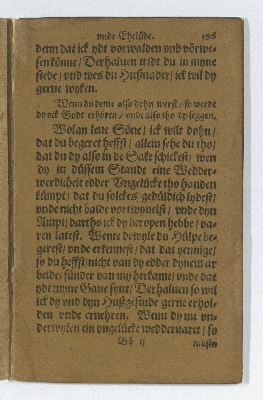 vnde Ehelüde. 196
denn dat ick ydt vorwalden vnd vörwe-
sen könne / Derhaluen tridt du in myne
stede / vnd wes du Hußuader / ick wil dy
gerne wyken.
Wenn du denne also dohn werst / so werdt
dy ock Godt erhören / vnde also tho dy seggen.
Wolan leue Söne / ick wilt dohn /
dat du begeret heffst / allein sehe du tho /
dat du dy also in de Sake schickest / wen
dy in düssem Stande eine Wedder-
werdicheit edder Vngelücke tho handen
kümpt / dat du solckes gedüldich lydest /
vnde nicht balde vortwyuelst / vnde dyn
Ampt / dartho ick dy beropen hebbe / va-
ren latest. Wente dewyle du Hülpe be-
gerest / vnde erkennest / dat dat yennige /
so du heffst / nicht van dy edder dynem ar
beide / sünder van my herkame / vnde dat
ydt myne Gaue synt / Derhaluen so wil
ick dy vnd dyn Hußgesinde gerne erhol-
den vnde ernehren. Wenn dy nu vn-
derwylen ein vngelücke wedderuaret / so
Bb ij